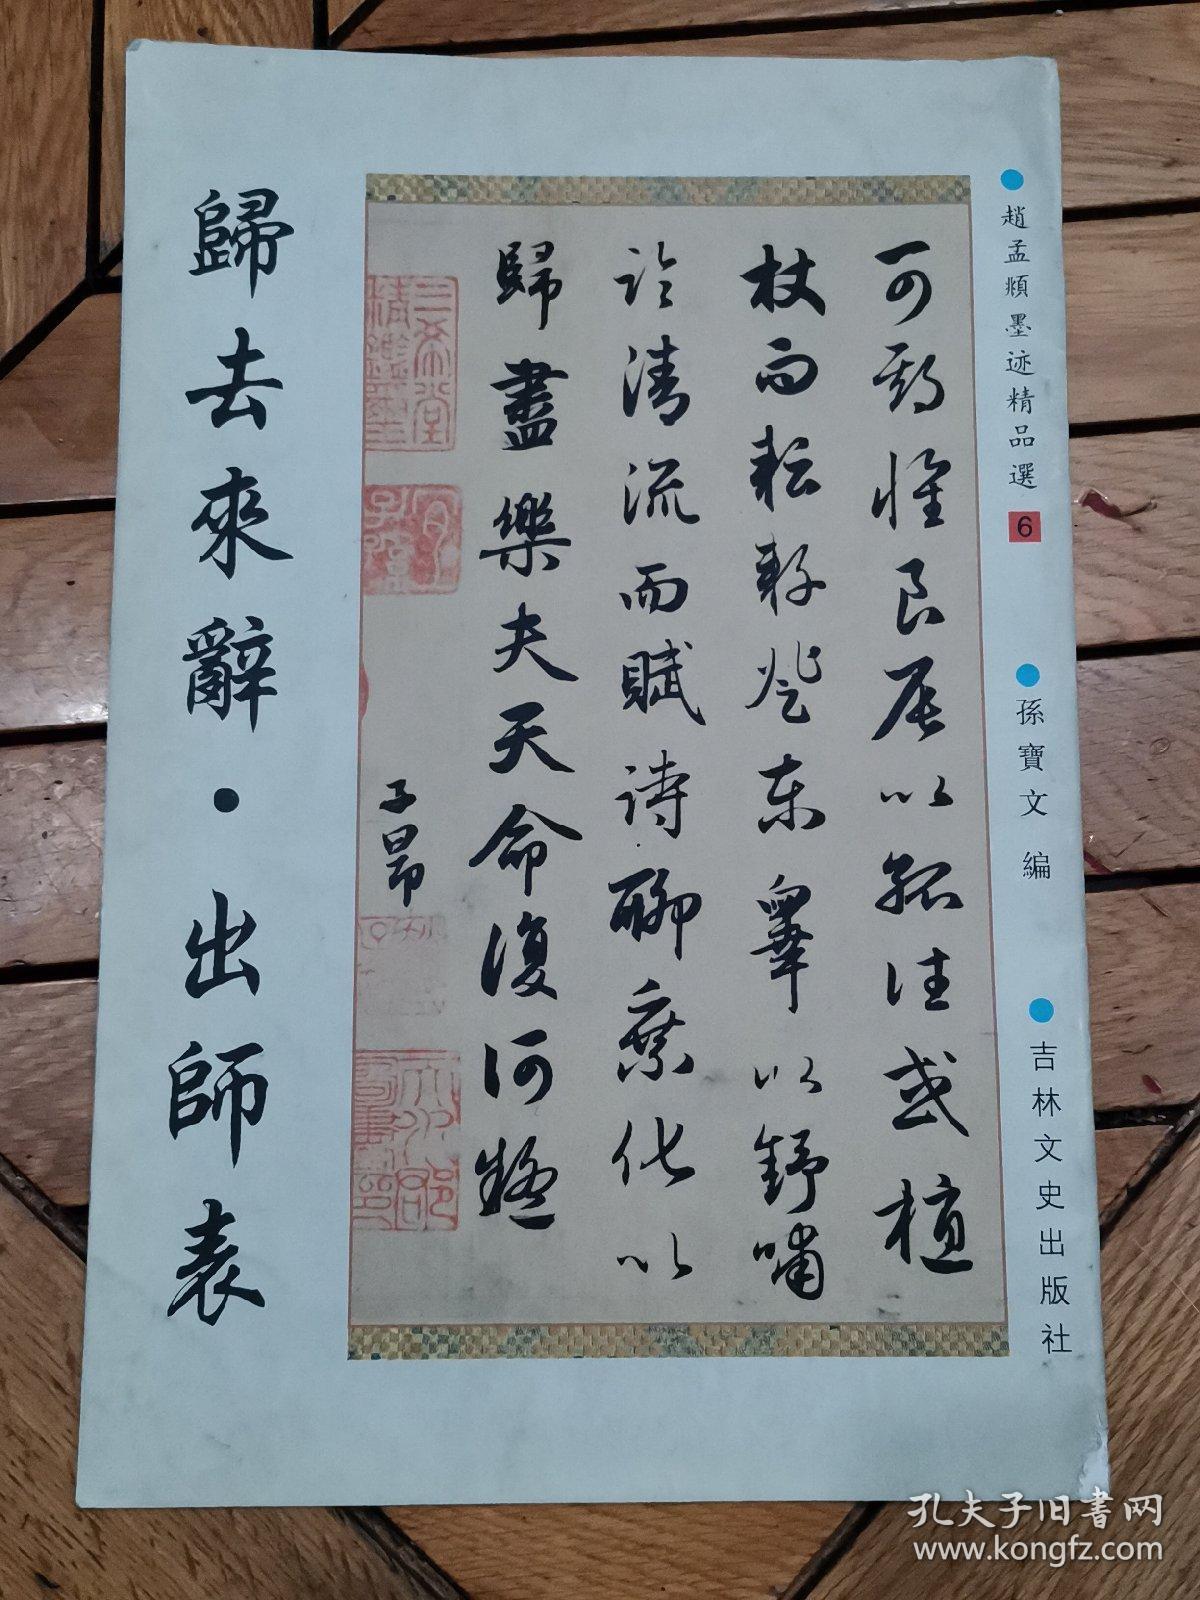 趙孟頫墨迹精品選 6
孫寶文 編
吉林文史出版社
可期懷良辰以孤往或植
杖而耘耔登東皋以舒嘯
臨清流而賦詩聊乘化以
歸盡樂夫天命復何疑
子昂
三希堂精鑑璽
宜子孫
歸去來辭·出師表
孔夫子旧书网
www.kongfz.com